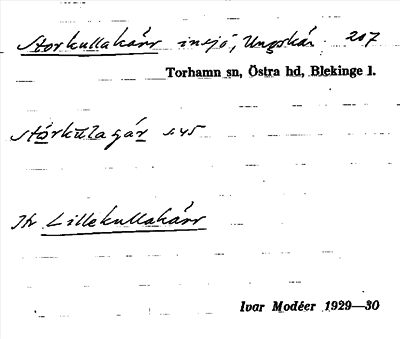 Storkullakärr insjö, Ungskär. 207
Torhamn sn, Östra hd, Blekinge l.
stórkulagár s. 45
Jfr Lillekullakärr
Ivar Modéer 1929—30